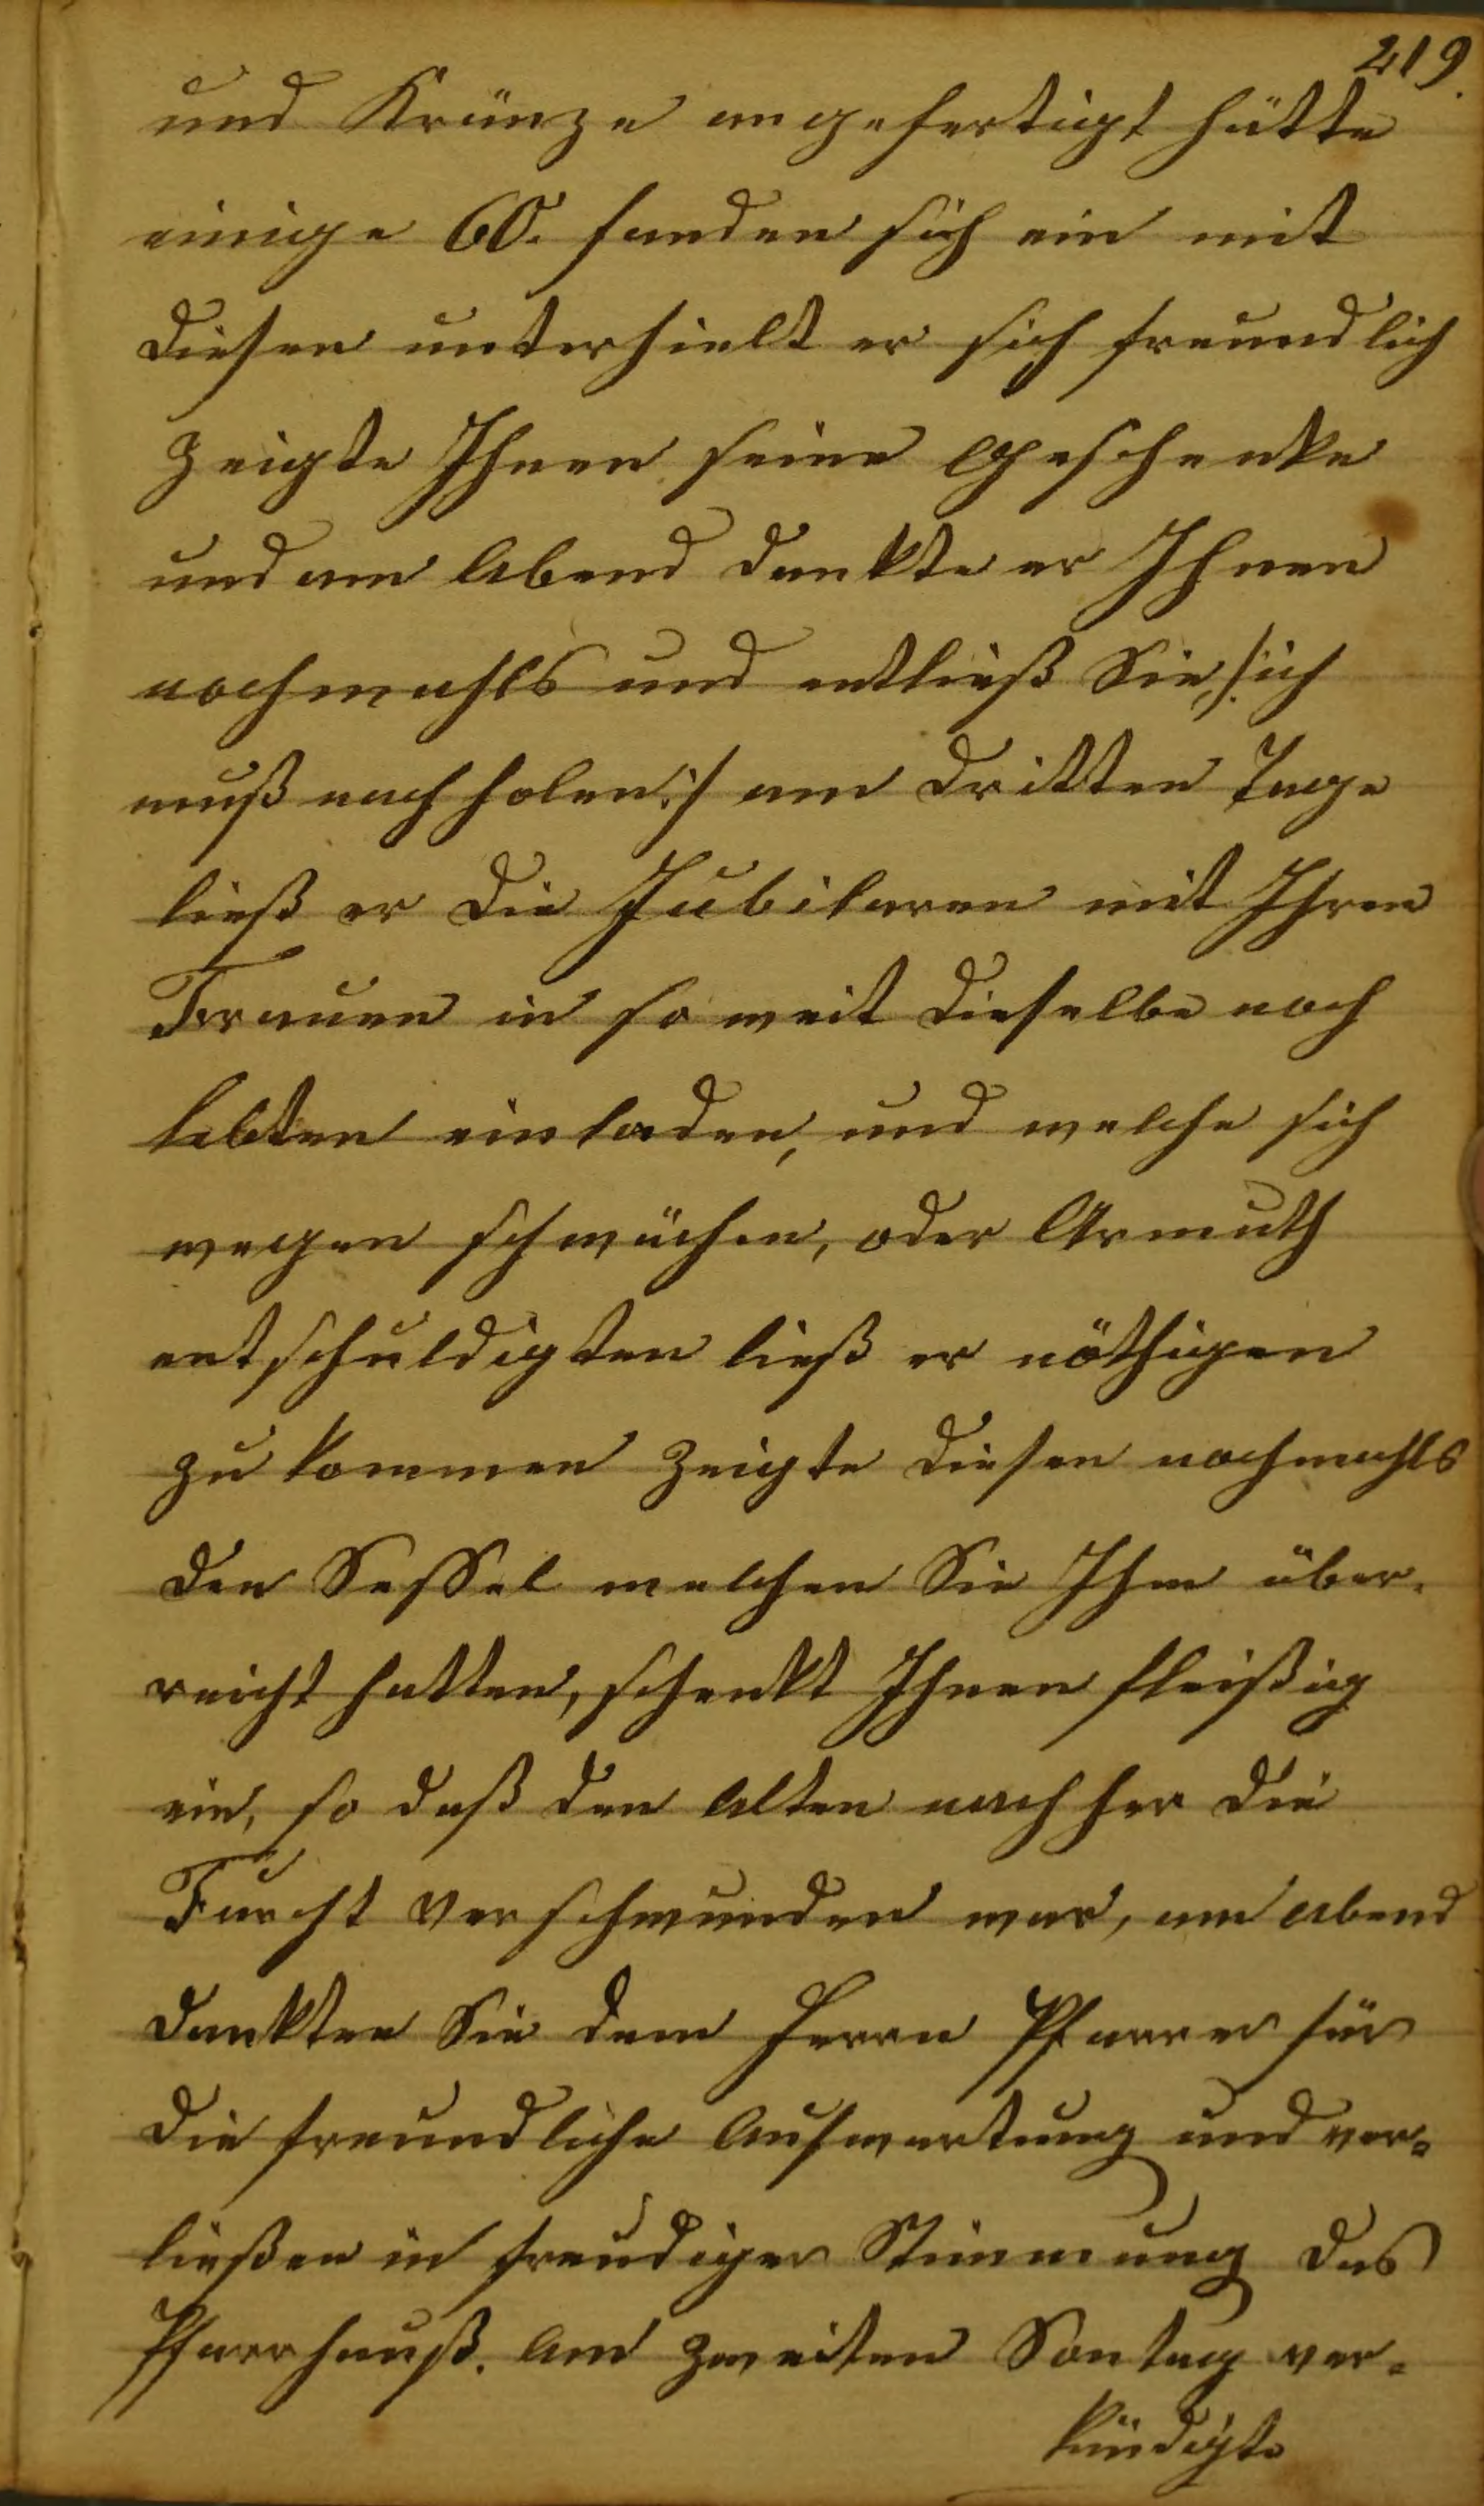 219.
und Kränze angefertigt hätte
einige 60. fanden sich ein mit
diesen unterhielt er sich freundlich
zeigte Ihnen seine Geschenke
und am Abend dankte er Ihnen
nochmahls und entließ Sie, /:ich
muß nach holen:/ am dritten Tage
ließ er die Jubilaren mit Ihren
Frauen in so weit dieselbe noch
lebten einladen, und welche sich
wegen schwächen, oder Armuth
entschuldigten ließ er nöthigen
zu kommen zeigte diesen nochmahls
den Sessel welchen Sie Ihm über-
reicht hatten, schenkt Ihnen fleißig
ein, so daß den Alten nach her die
Furcht verschwunden war, am abend
dankten Sie dem Herrn Pfarrer für
die freundliche Aufwartung und ver=
ließen in freudiger Stimmung das
Pfarrhauß. Am zweiten Sontag ver=
kündigte